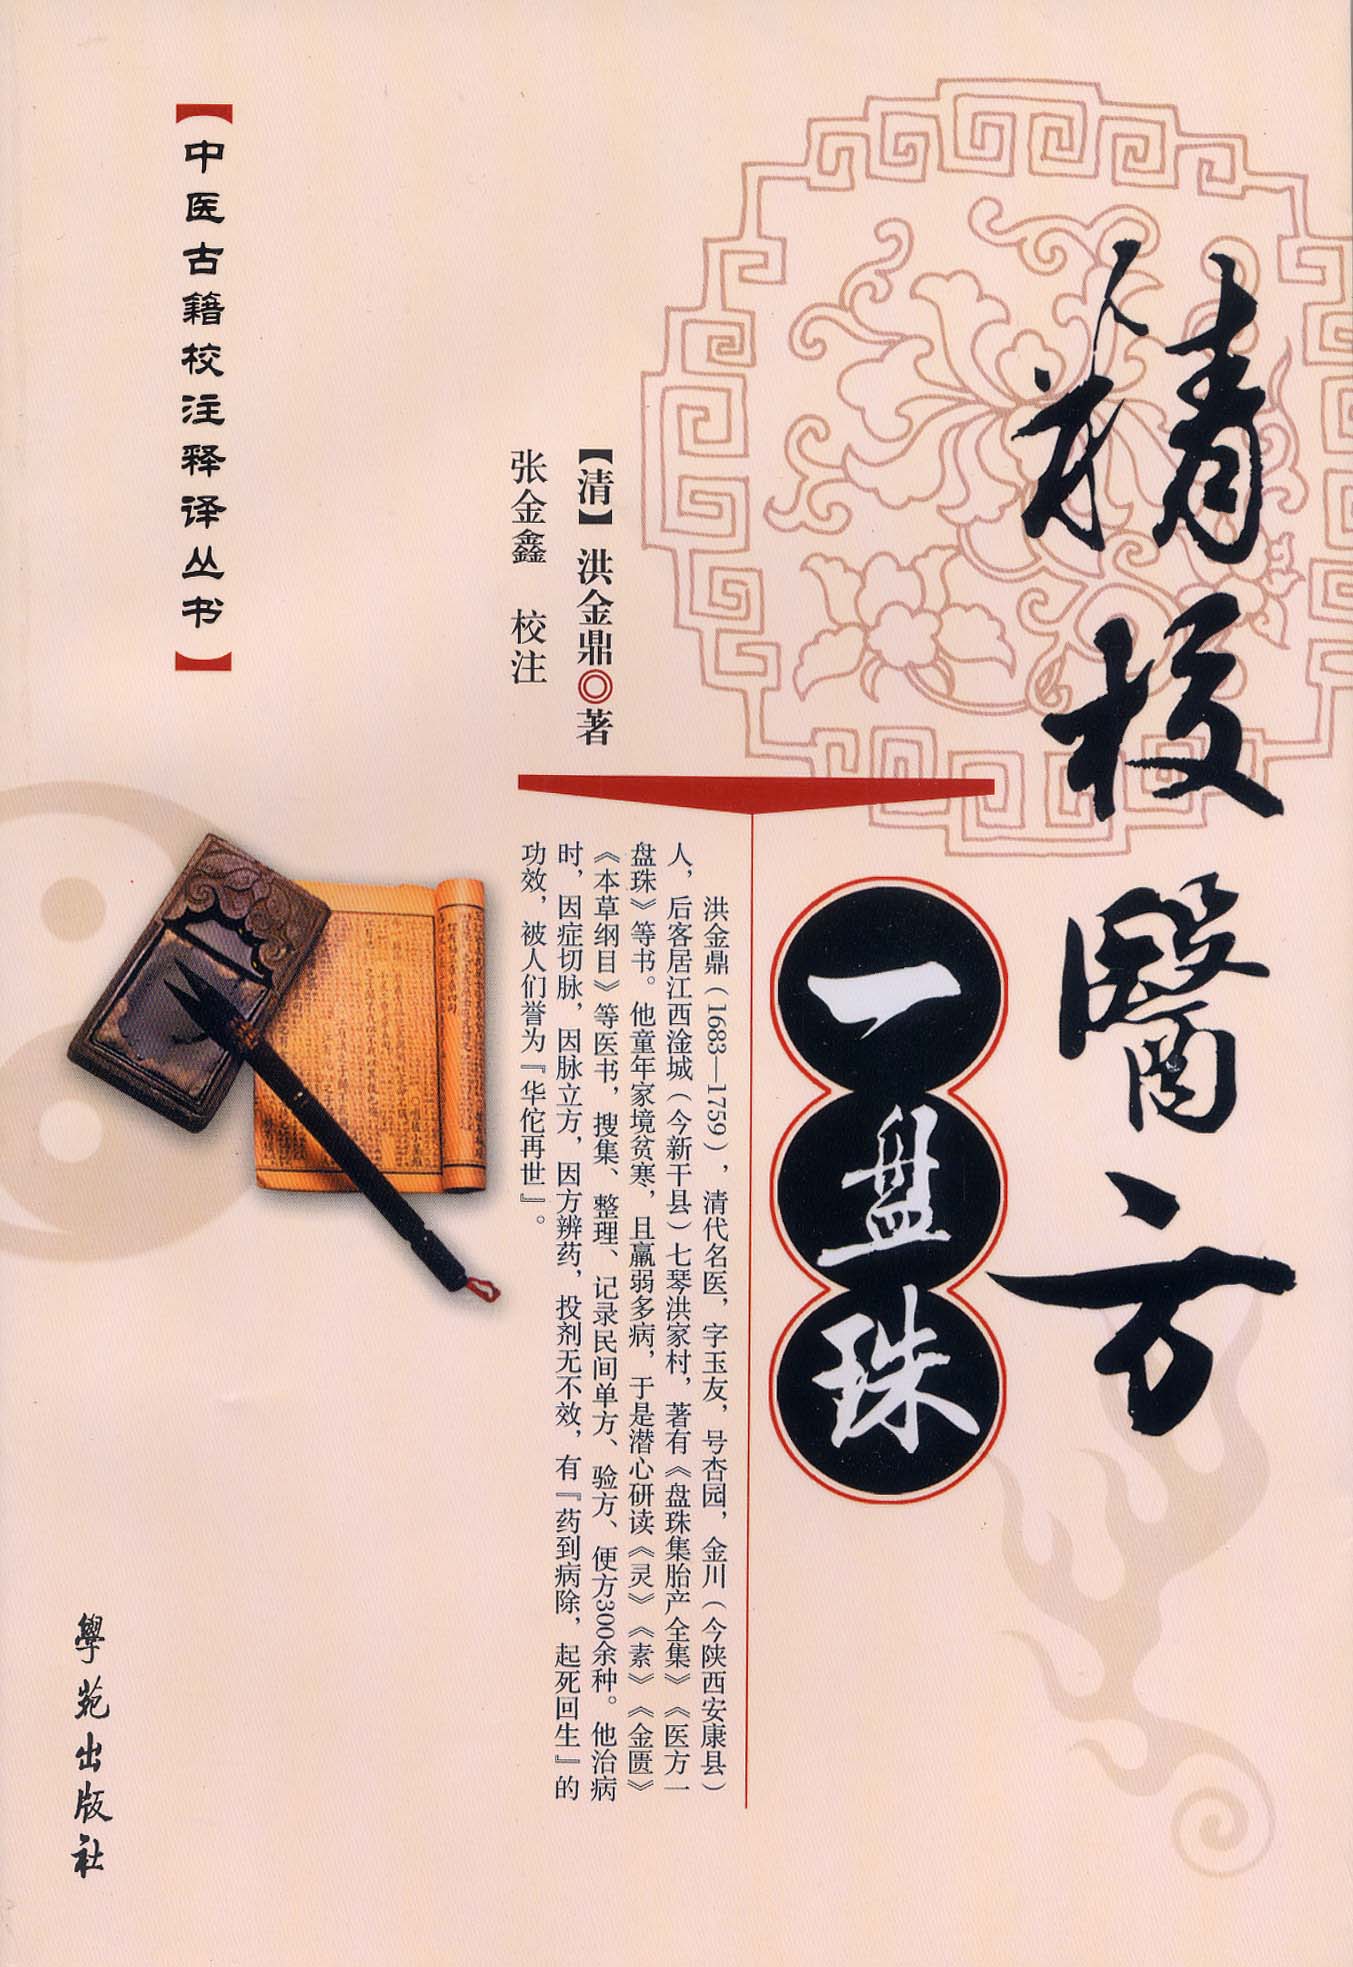 精校醫方
一盘珠
【清】洪金鼎◎著
张金鑫 校注
洪金鼎（1683—1759），清代名医，字玉友，号杏园，金川（今陕西安康县）
人，后客居江西淦城（今新干县）七琴洪家村，著有《盘珠集胎产全集》《医方一
盘珠》等书。他童年家境贫寒，且羸弱多病，于是潜心研读《灵》《素》《金匮》
《本草纲目》等医书，搜集、整理、记录民间单方、验方、便方300余种。他治病
时，因症切脉，因脉立方，因方辨药，投剂无不效，有『药到病除，起死回生』的
功效，被人们誉为『华佗再世』。
【中医古籍校注释译丛书】
學苑出版社